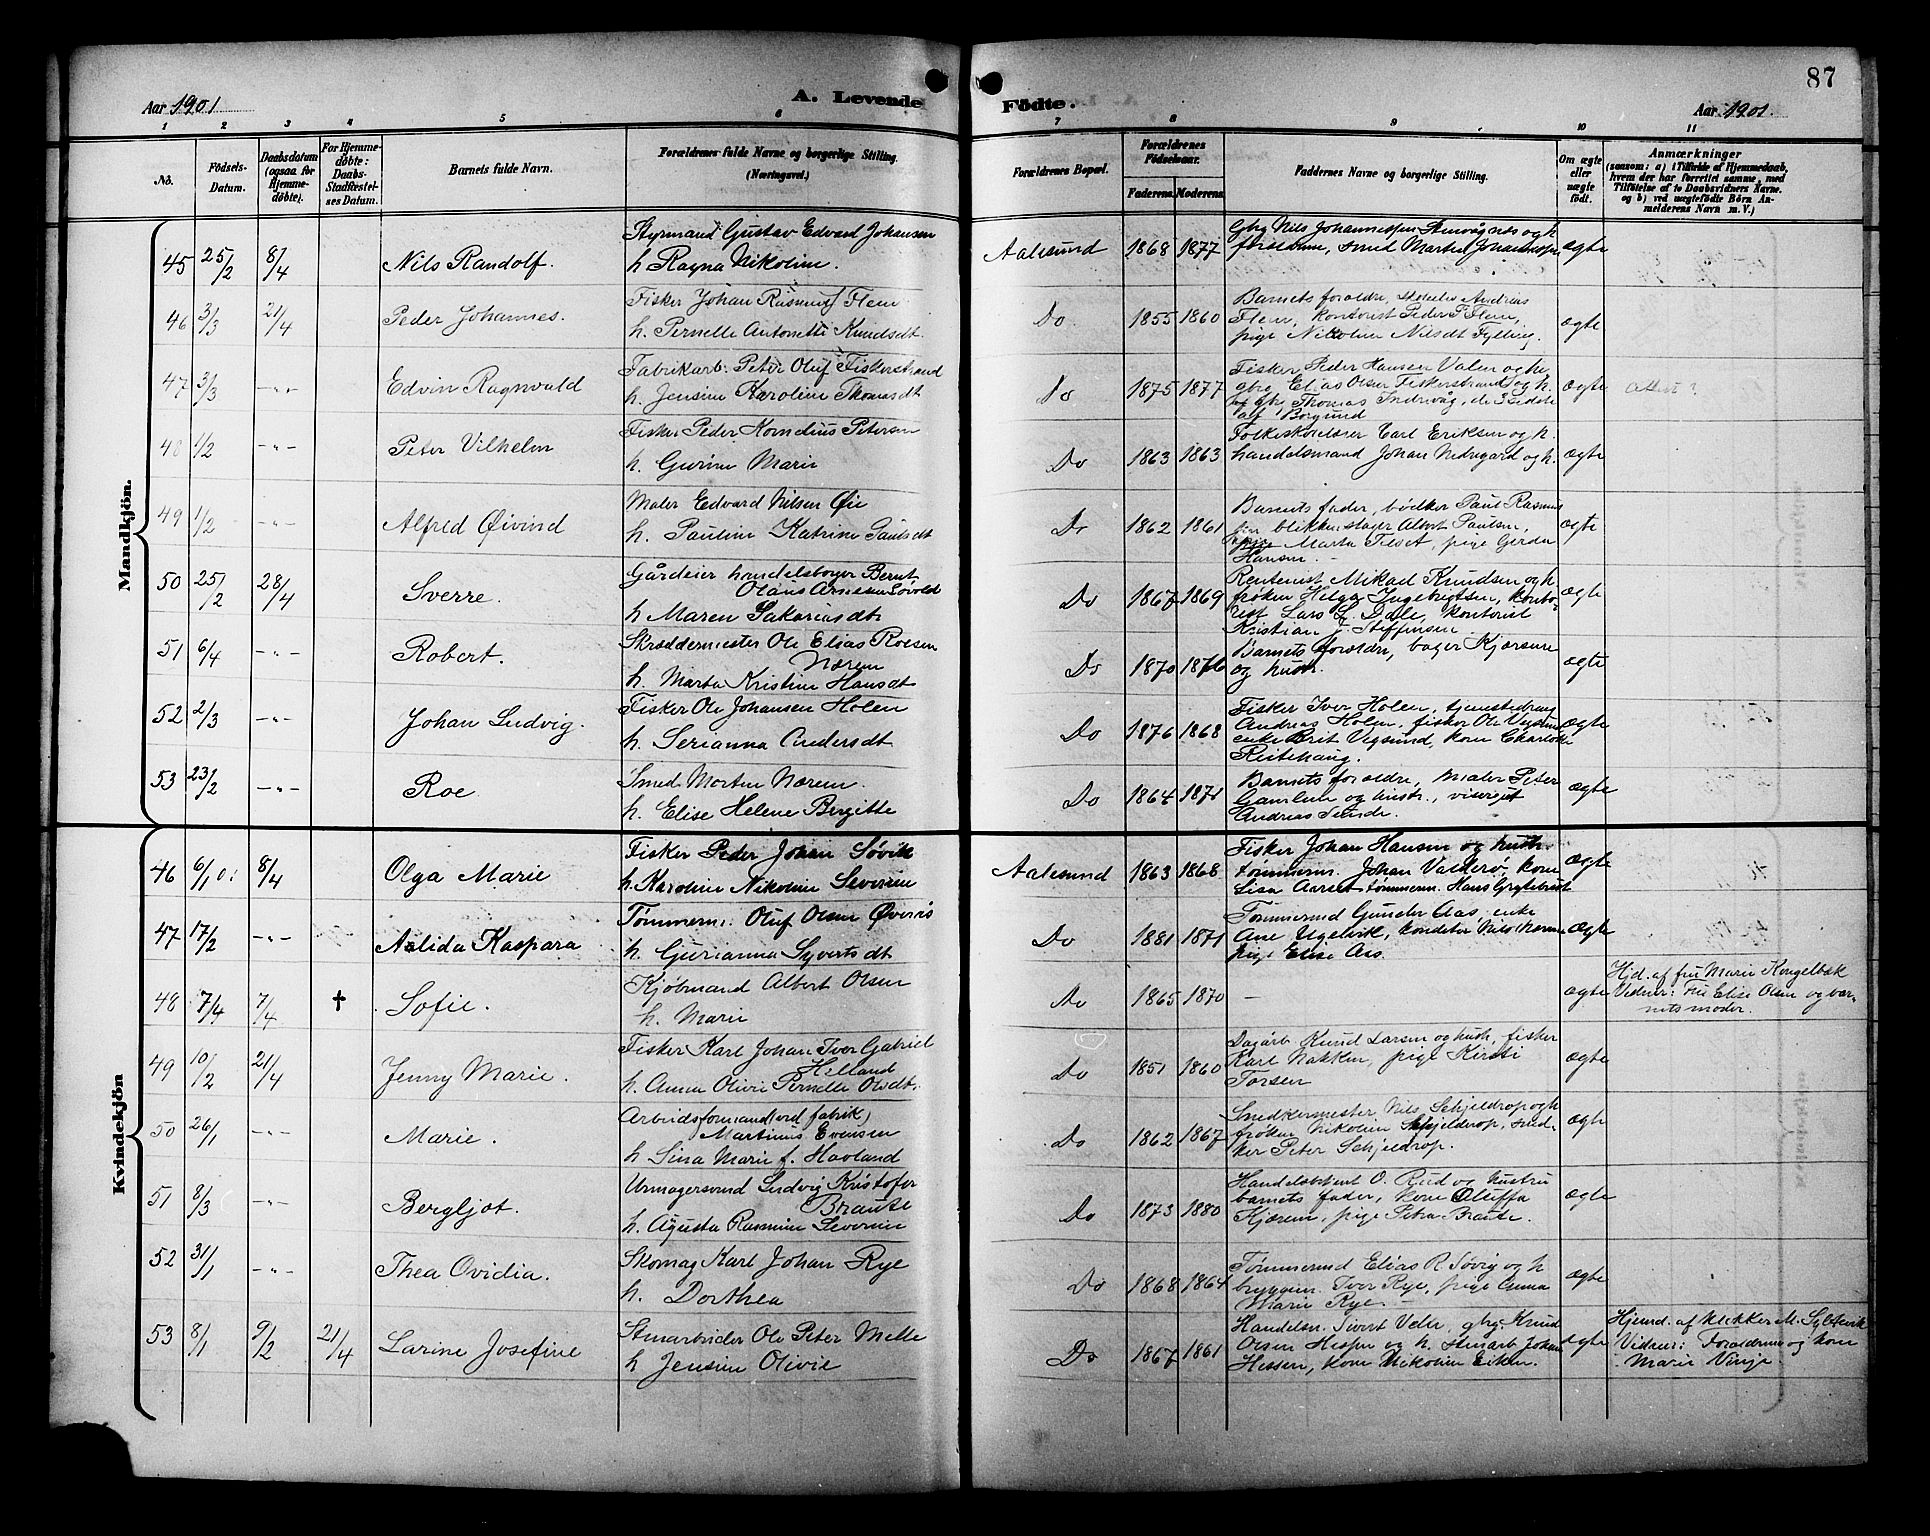 87
Aar 1901
A. Levende
Födte.
Aar 1901.
1 2 3 4 5 6 7 8 9 10 11
No. Födsels-Datum. Daabsdatum (ogsaa for Hjemmedöbte). For Hjemmedöbte: Daabs-Stadfæstelses Datum. Barnets fulde Navn. Forældrenes fulde Navne og borgerlige Stilling. (Næringsvei.)
Forældrenes Bopæl. Forældrenes Födselsaar. Faderens. Moderens. Faddernes Navne og borgerlige Stilling. Om ægte eller uægte födt. Anmærkninger (saasom: a) i Tilfælde af Hjemmedaab, hvem der har forrettet samme, med Tilföielse af to Daabsvidners Navne. og b) ved uægtefödte Börn Anmelderens Navn m. V.)
Mandkjön.
45 25/2 8/4 Nils Randolf. Styrmand Gustav Edvard Johansen
h. Ragna Nikoline. Aalesund 1868 1877 Gbrg Nils Johannessen Stenvågnes og h.
smed Martin Johannessen ægte
46 3/3 21/4 Peder Johannes. Fisker Johan Rasmus Flem
h. Pernelle Antonette Knudsdt. Do 1855 1860 Barnets foroldre, Andreas
Flem, kontorist Peder P Flem,
pige Nikoline Nilsdt Fylling. ægte
47 3/3 -"- Edvin Ragnvald Fabrikarb. Peter Oluf Fiskerstrand
h. Jensine Karoline Thomasdt Do 1875 1877 Fisker Peder Hansen Valen og h.
gbrg Elias Olsen Fiskerstrand og h.
gbr Thomas Indrevåg, de 3 sidste
af Borgund ægte
48 1/2 -"- Peter Vilhelm Fisker Peder Kornelius Petersen
h. Gurine Marie Do 1863 1863 Folkeskolelærer Carl Eriksen og h.
handelsmand Johan Nedregard og h. ægte
49 1/2 -"- Alfred Øivind Maler Edvard Nilsen Øie
h. Pauline Katrine Paulsdt Do 1862 1861 Barnets fader, bødker Paul Rasmus
blikkenslager Albert Paulsen,
Marta Tilset, pige Gerda
Hansen. ægte
50 25/2 28/4 Sverre. Gårdeier handelsborger Bernt
Olaus Arnesen Løvold
h. Maren Sakariasdt. Do 1867 1869 Rentenist Mikael Knudsen og h.
frøken Helga Ingebrigtsen, kontorist
Lars L. Dale, kontorist
Kristian J. Steffensen ægte
51 6/4 -"- Robert. Skræddermester Ole Elias Roesen
Nærem
h. Marta Kristine Hansdt Do 1870 1876 Barnets foroldre, bager
og hustr. ægte
52 2/3 -"- Johan Ludvig. Fisker Ole Johansen Holen
h. Serianna Andersdt Do 1876 1868 Fisker Iver Holen, tjenestedreng
Andreas Holen, fisker Ole Vegsund
enke Brit Vegsund, kone Charlotte
Reitehaug. ægte
53 23/2 -"- Roe. Smed Morten Nærem.
h. Elise Helene Birgitte Do 1864 1871 Barnets foroldre, Maler Peter
Gamlem og hustr., visergut
Andreas Sunde. ægte
Kvindekjön
46 6/1 01 8/4 Olga Marie Fisker Peder Johan Søvik
h. Karoline Nikoline Severine Aalesund 1863 1868 Fisker Johan Hansen og hustr.
tømmerm. Johan Valkerø, kone
Lisa Aarset tømmerm. Hans Grytebust ægte
47 17/2 -"- Aalida Kaspara Tømmerm. Oluf Olsen Øvereis
h. Gurianna Syvertsdt Do 1881 1871 Tømmermd Gunder Aas, enke
Ane Ugelvik,
pige Elise Aas. ægte
48 7/4 7/4 † Sofie. Kjøbmand Albert Olsen
h. Marie Do 1865 1870 — ægte Hjd. af fru Marie Kongelbæk
Vidner: Fru Elise Olsen og barnets
moder.
49 10/2 21/4 Jenny Marie. Fisker Karl Johan Iver Gabriel
Helland
h. Anna Olivie Pernelle Olsdt. Do 1851 1860 Dagarb Knud Larsen og hustr, fisker
Karl Nakken, pige Kirsti
Torsen ægte
50 26/1 -"- Marie. Arbeidsformand (ved fabrik)
Martinus Evensen
h. Lina Marie f. Havland Do 1862 1867 Snedkermester Nils Schjeldrop og h
frøken Nikoline Schjeldrop, snedker
Peter Schjeldrop. ægte
51 8/3 -"- Bergljot. Urmagersvend Ludvig Kristofer
Braute
h. Agusta Rasmine Severine Do 1873 1880 Handelsbetjent O. Rud og hustru
barnets fader, kone Oluffa
Kjærem, pige Petra Braute. ægte
52 31/1 -"- Thea Ovidia. Skomag Karl Johan Rye
h. Dorthea Do 1868 1864 Tømmermd Elias R Søvig og h
bryggem. Iver Rye, pige Anna
Marie Rye — ægte
53 8/1 9/2 21/4 Larine Josefine Stenarbeider Ole Peter Melle
h Jensine Olivie Do 1867 1861 Handelsm. Sivert Velle, gbrg Knud
Olsen Hessen og h. stenarb Johan
Hessen, kone Nikoline Eikrem. ægte Hjemd. af klokker M. Syltevik
Vidner: Foroldrene og kone
Marie Vinje.